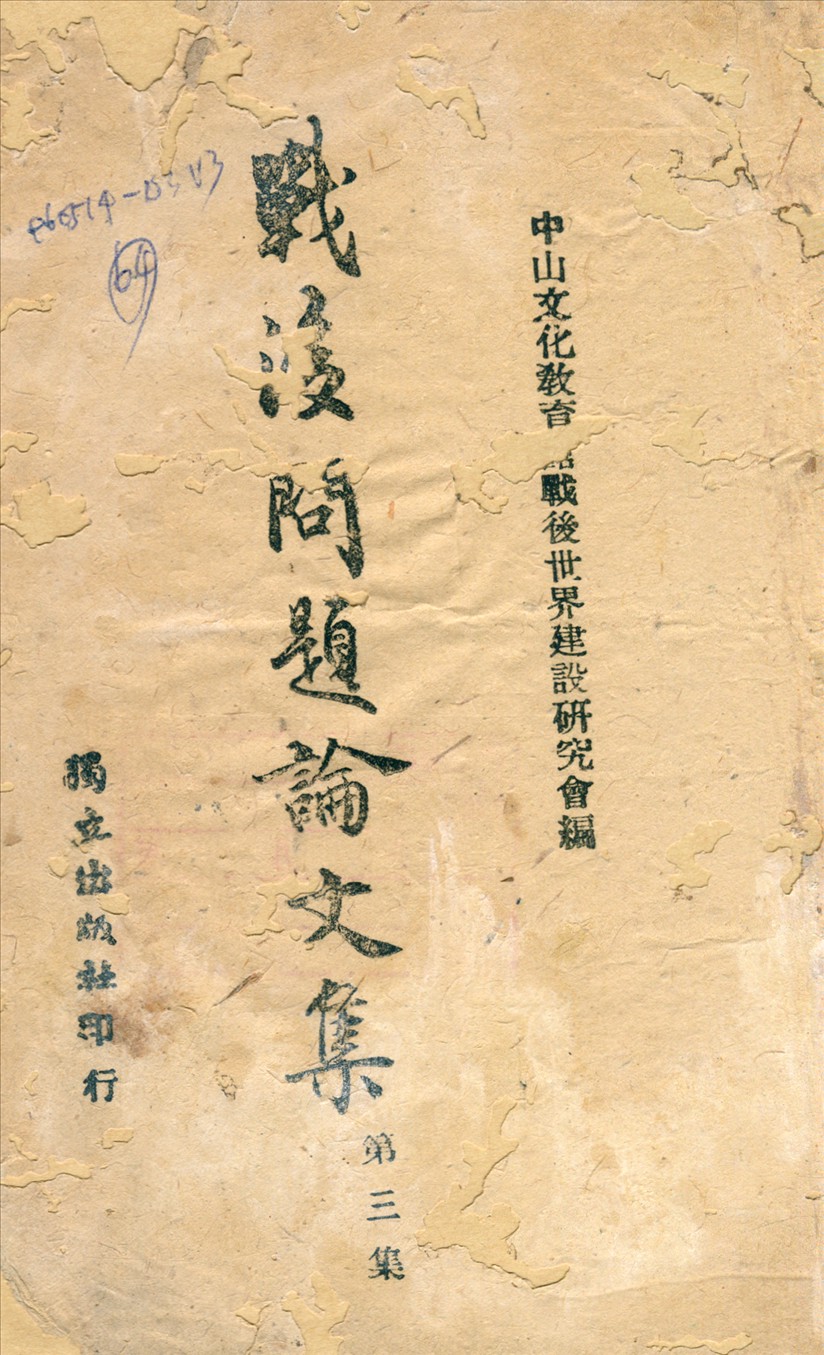 中山文化教育 戰後世界建設研究會編
戰後問題論文集
第三集
獨立出版社印行
64